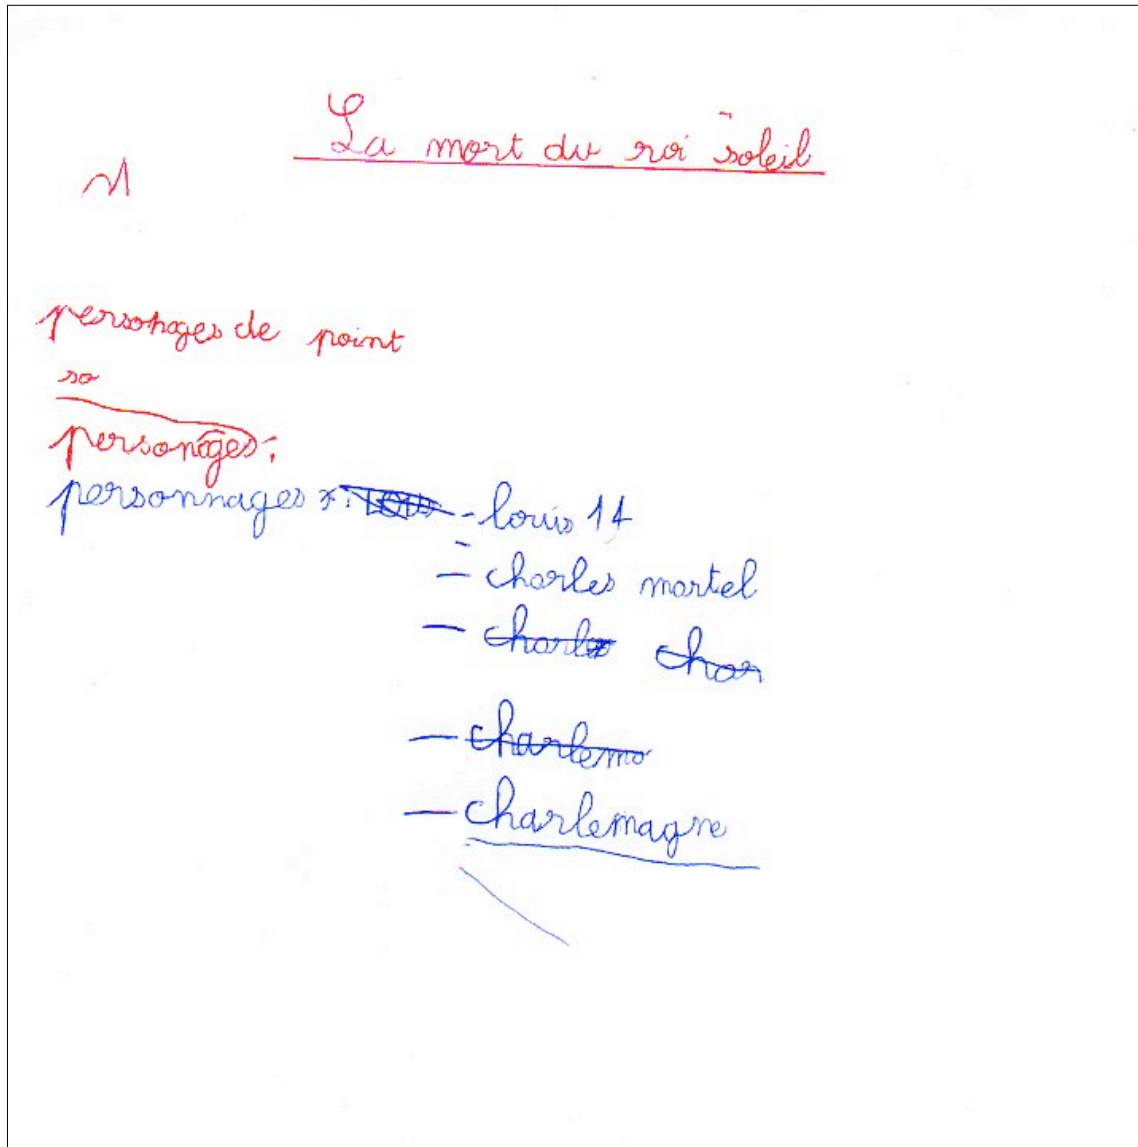 La mort du roi soleil
personages de point
so
personages :
personnages : - louis 14
- charles martel
- charle char
- charlema
- charlemagne